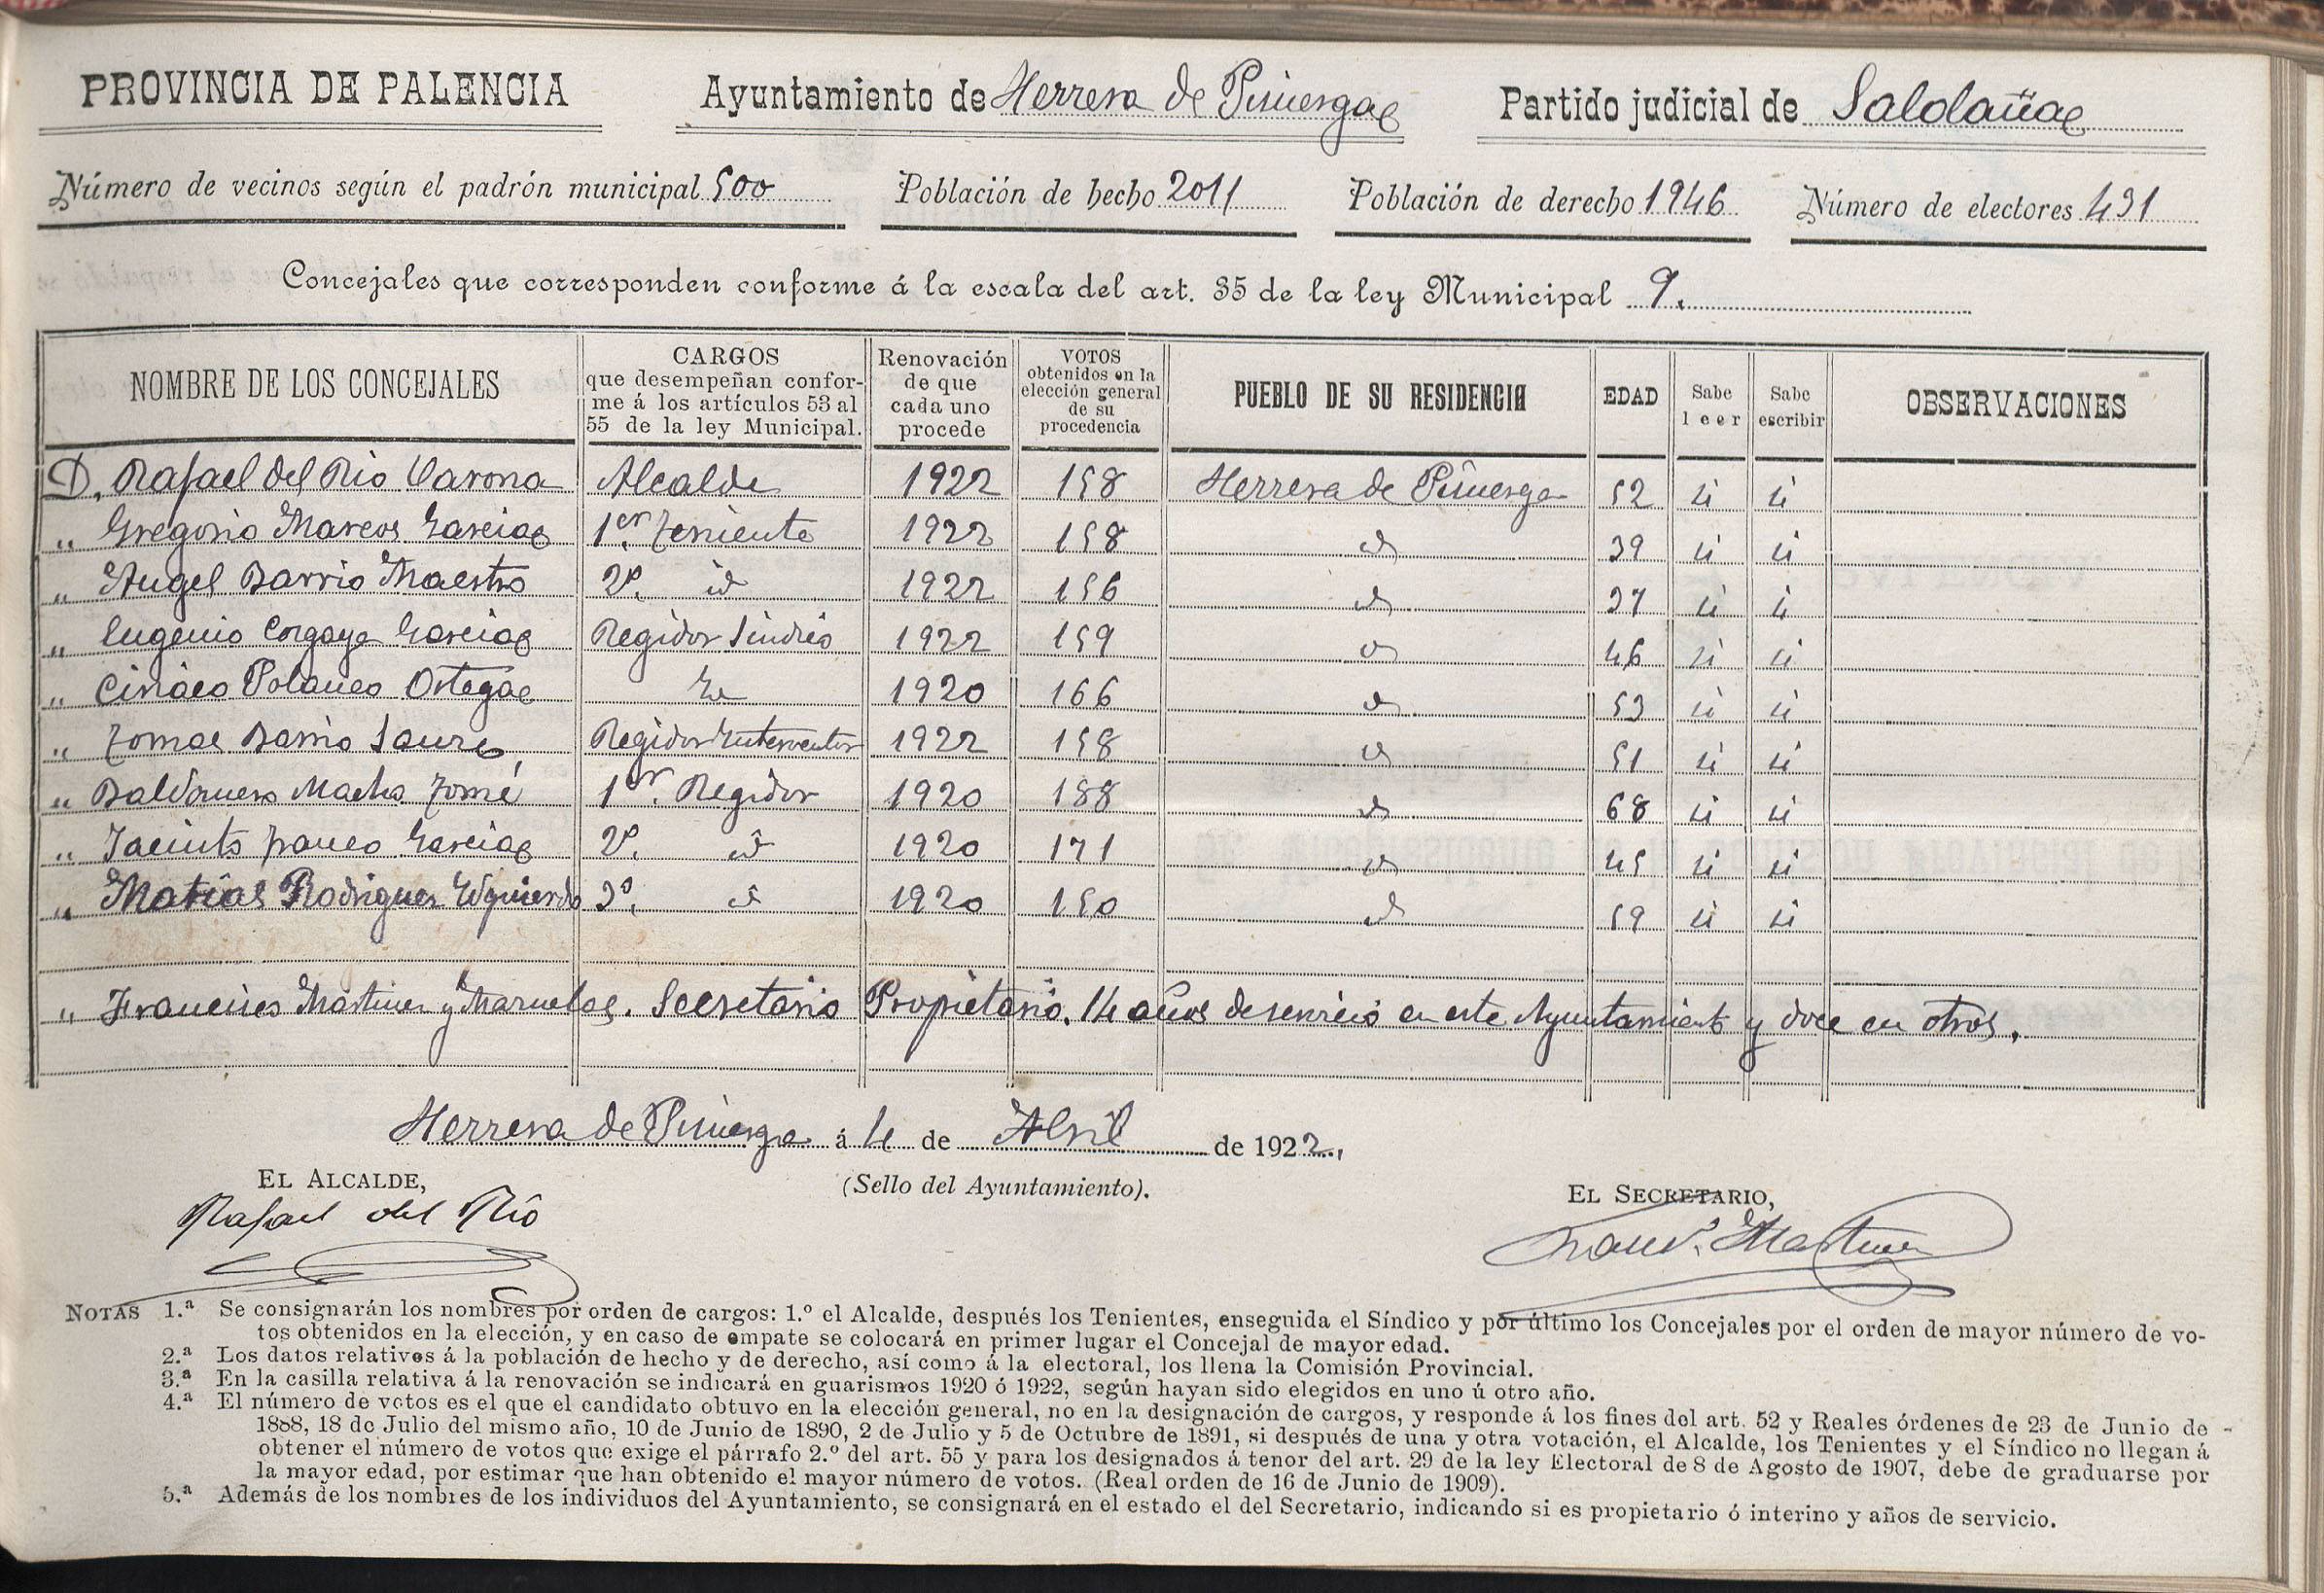 PROVINCIA DE PALENCIA Ayuntamiento de Herrera de Pisuerga Partido judicial de Saldaña
Número de vecinos según el padrón municipal 500 Población de hecho 2011 Población de derecho 1946 Número de electores 431
Concejales que corresponden conforme á la escala del art. 35 de la ley Municipal 9.
NOMBRE DE LOS CONCEJALES
CARGOS
que desempeñan confor-
me á los artículos 53 al
55 de la ley Municipal.
Renovación
de que
cada uno
procede
VOTOS
obtenidos en la
elección general
de su
procedencia
PUEBLO DE SU RESIDENCIA
EDAD
Sabe
leer
Sabe
escribir
OBSERVACIONES
D. Rafael del Rio Varona Alcalde 1922 158 Herrera de Pisuerga 52 si si
„ Gregorio Marcos Garcia 1er. Teniente 1922 158 id 39 si si
„ Angel Barrio Maestro 2º. id 1922 156 id 37 si si
„ Eugenio Garcia Regidor Sindico 1922 159 id 46 si si
„ Ciriaco Polanco Ortega 1920 166 id 53 si si
„ Tomas Barrio Regidor Interventor 1922 158 id 51 si si
„ Baldomero Macho Tomé 1er. Regidor 1920 188 id 68 si si
„ Jacinto Franco Garcia 2º. id 1920 171 id 45 si si
„ Matias Rodriguez Izquierdo 3º. id 1920 150 id 59 si si
„ Francisco Martinez y Mazuelas. Secretario Propietario. 14 años de servicio en este Ayuntamiento y doce en otros.
Herrera de Pisuerga á 4 de Abril de 1922.
EL ALCALDE,
(Sello del Ayuntamiento).
EL SECRETARIO,
Rafael del Río
Franco. Martinez
NOTAS 1.ª Se consignarán los nombres por orden de cargos: 1.º el Alcalde, después los Tenientes, enseguida el Síndico y por último los Concejales por el orden de mayor número de vo-
tos obtenidos en la elección, y en caso de empate se colocará en primer lugar el Concejal de mayor edad.
2.ª Los datos relativos á la población de hecho y de derecho, así como á la electoral, los llena la Comisión Provincial.
3.ª En la casilla relativa á la renovación se indicará en guarismos 1920 ó 1922, según hayan sido elegidos en uno ú otro año.
4.ª El número de votos es el que el candidato obtuvo en la elección general, no en la designación de cargos, y responde á los fines del art. 52 y Reales órdenes de 23 de Junio de
1888, 18 de Julio del mismo año, 10 de Junio de 1890, 2 de Julio y 5 de Octubre de 1891, si después de una y otra votación, el Alcalde, los Tenientes y el Síndico no llegan á
obtener el número de votos que exige el párrafo 2.º del art. 55 y para los designados á tenor del art. 29 de la ley Electoral de 8 de Agosto de 1907, debe de graduarse por
la mayor edad, por estimar que han obtenido el mayor número de votos. (Real orden de 16 de Junio de 1909).
5.ª Además de los nombres de los individuos del Ayuntamiento, se consignará en el estado el del Secretario, indicando si es propietario ó interino y años de servicio.